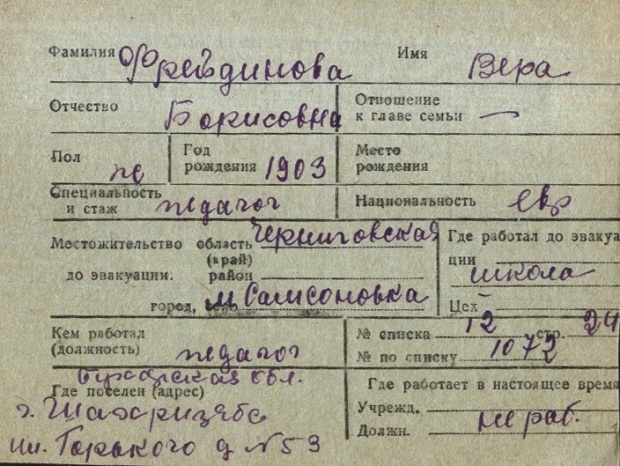 Фамилия Фрейдинова Имя Вера
Отчество Борисовна Отношение
к главе семьи —
Пол же Год
рождения 1903 Место
рождения
Специальность
и стаж педагог Национальность евр
Местожительство область Черниговская Где работал до эвакуа
(край)
до эвакуации. район ции школа
город, село м Самсоновка Цех
Кем работал
(должность) педагог № списка 12 стр. 24
№ по списку 1072
Бухарская обл.
Где поселен (адрес) Где работает в настоящее время
г. Шахризябс Учрежд.
ул. Горького д №53 Должн. не раб.